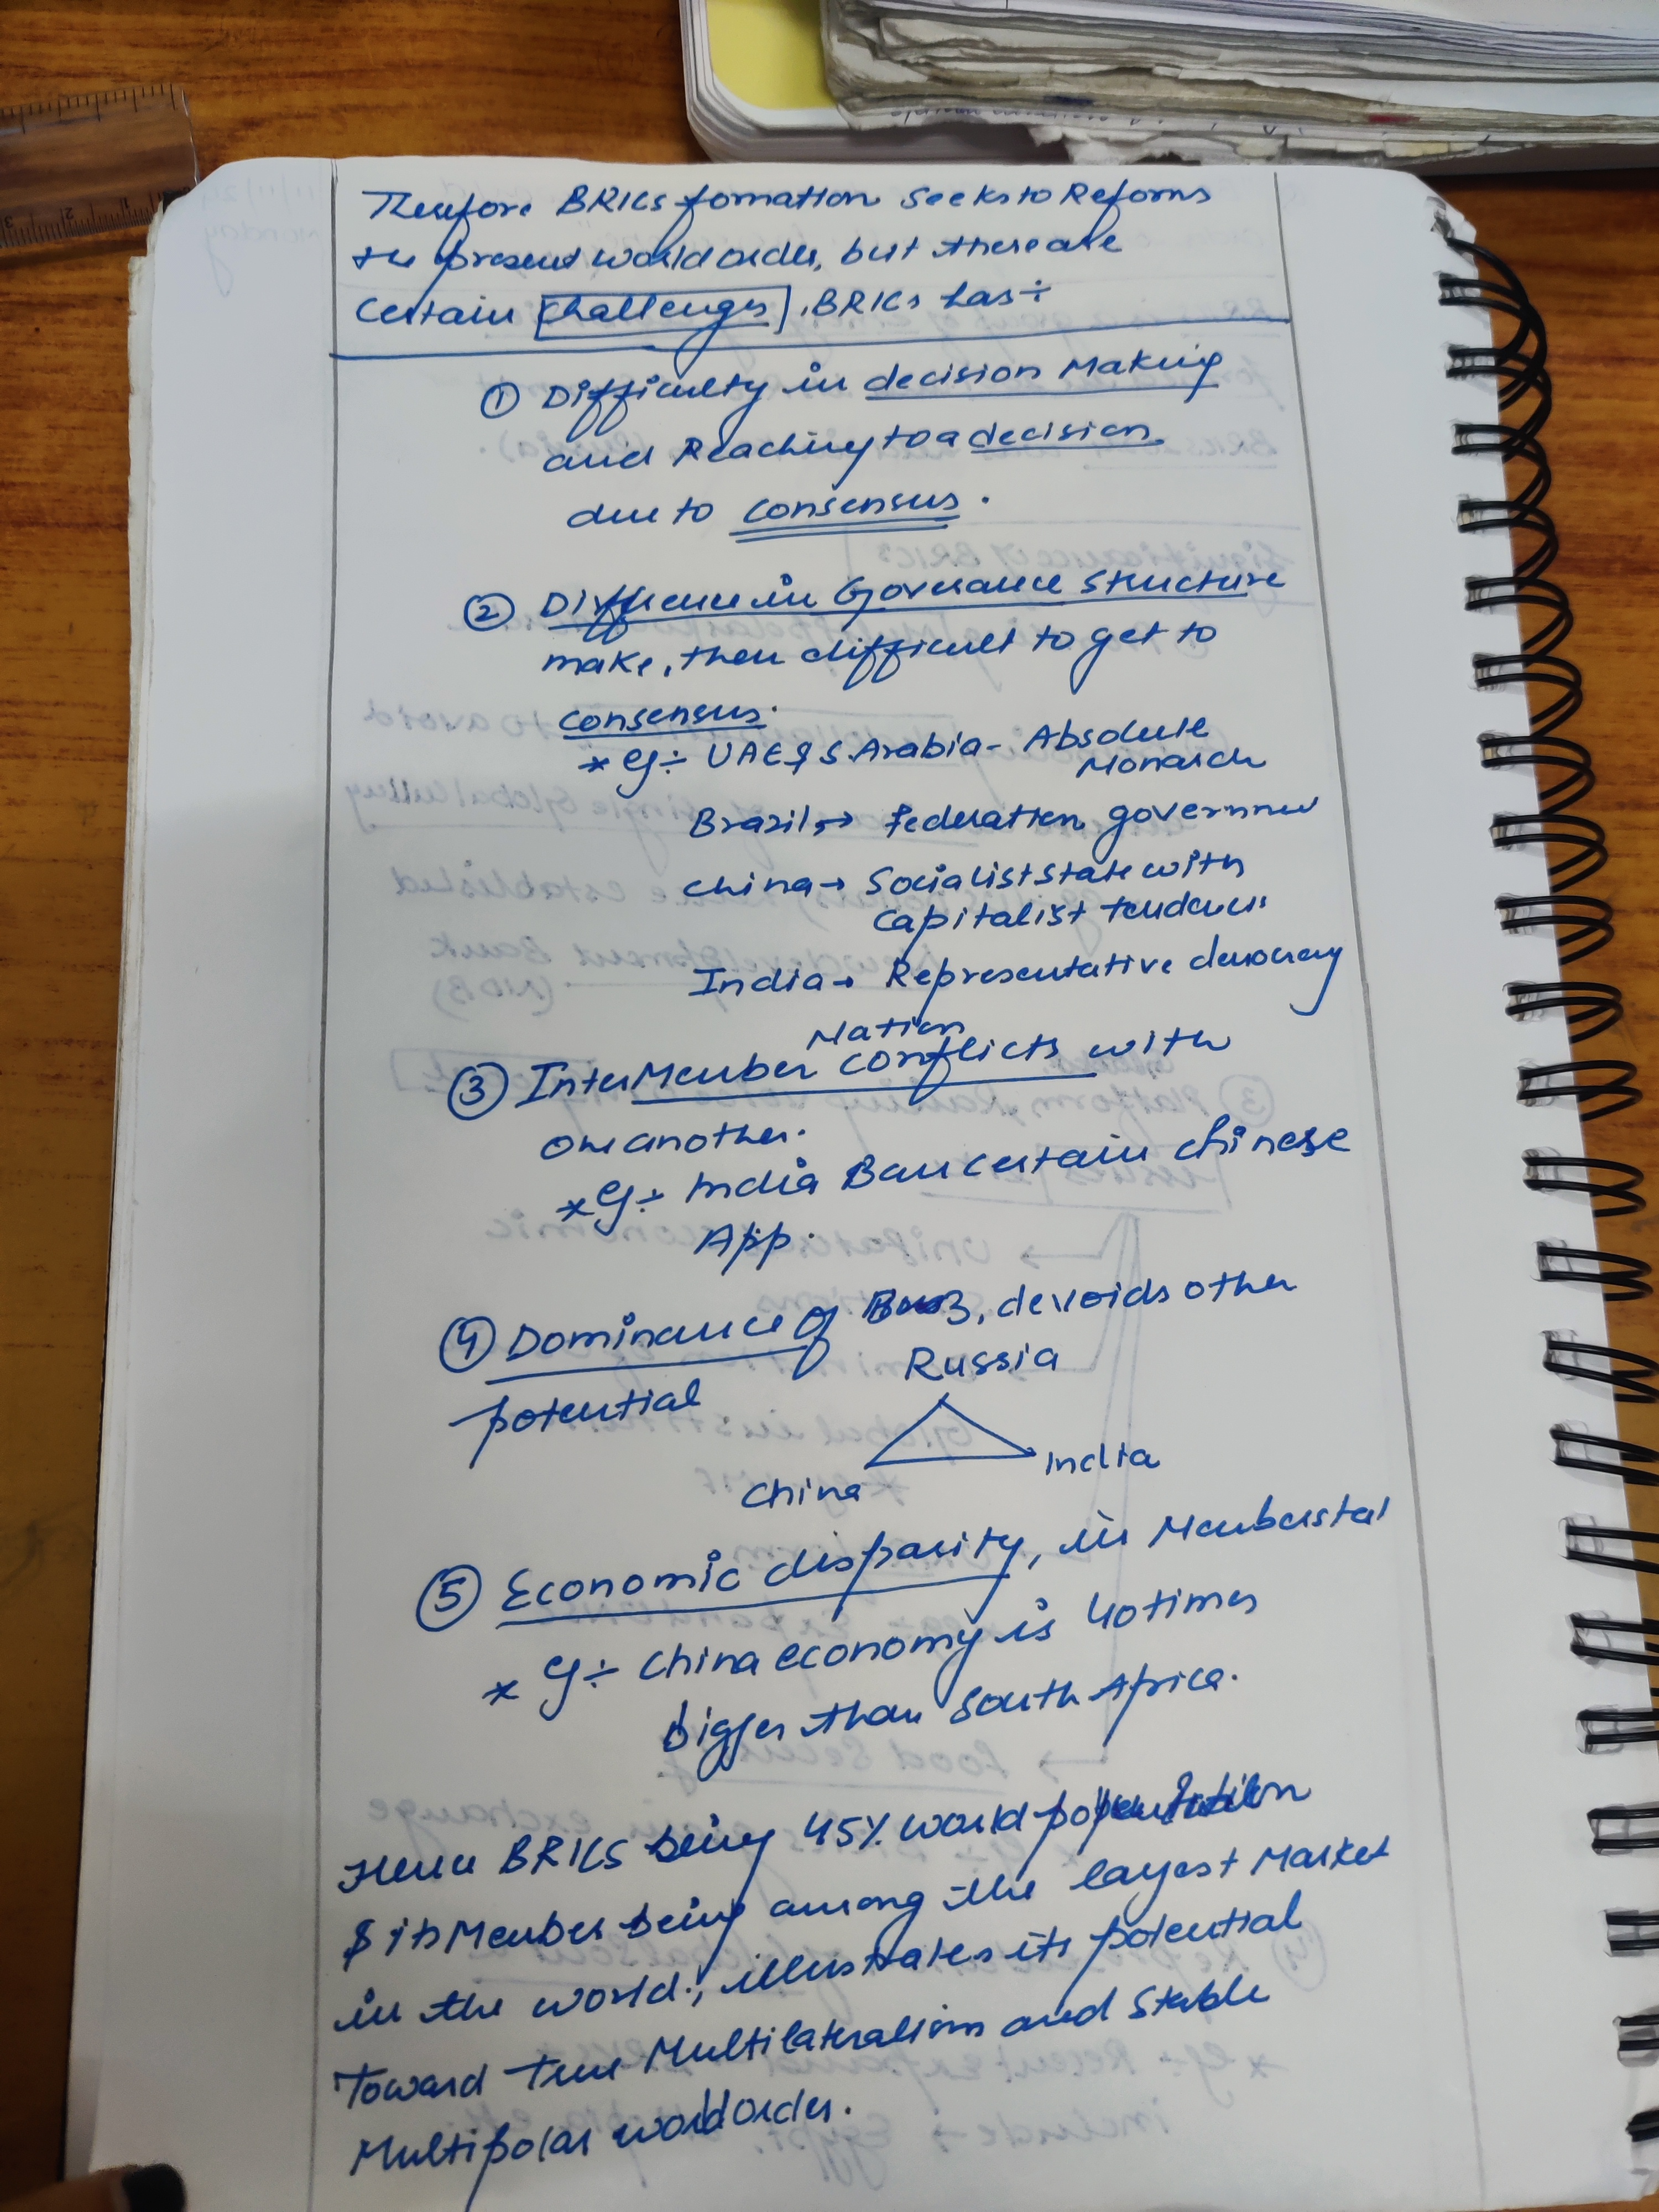 Therefore BRICS formation seeks to Reforms
the present world order, but there are
certain challenges, BRICS has÷
① Difficulty in decision Making
and Reaching to a decision
due to consensus.
② Difference in Goverance structure
make, then difficult to get to
consensus.
* eg÷ UAE & S. Arabia - Absolute
Monarch
Brazil → Federation
China → Socialist state with
Capitalist
India → Representative democracy
Nation
③ InterMember conflicts with
one another.
* eg÷ India Ban certain chinese
App.
④ Dominance of 3, devoids other
potential
Russia
China
India
⑤ Economic disparity, in
* eg÷ China economy is 40 times
bigger than South Africa.
Hence BRICS being 45% world population
& its Member being among the largest Market
in the world, illustrates its potential
Toward True Multilateralism and Stable
Multipolar world order.